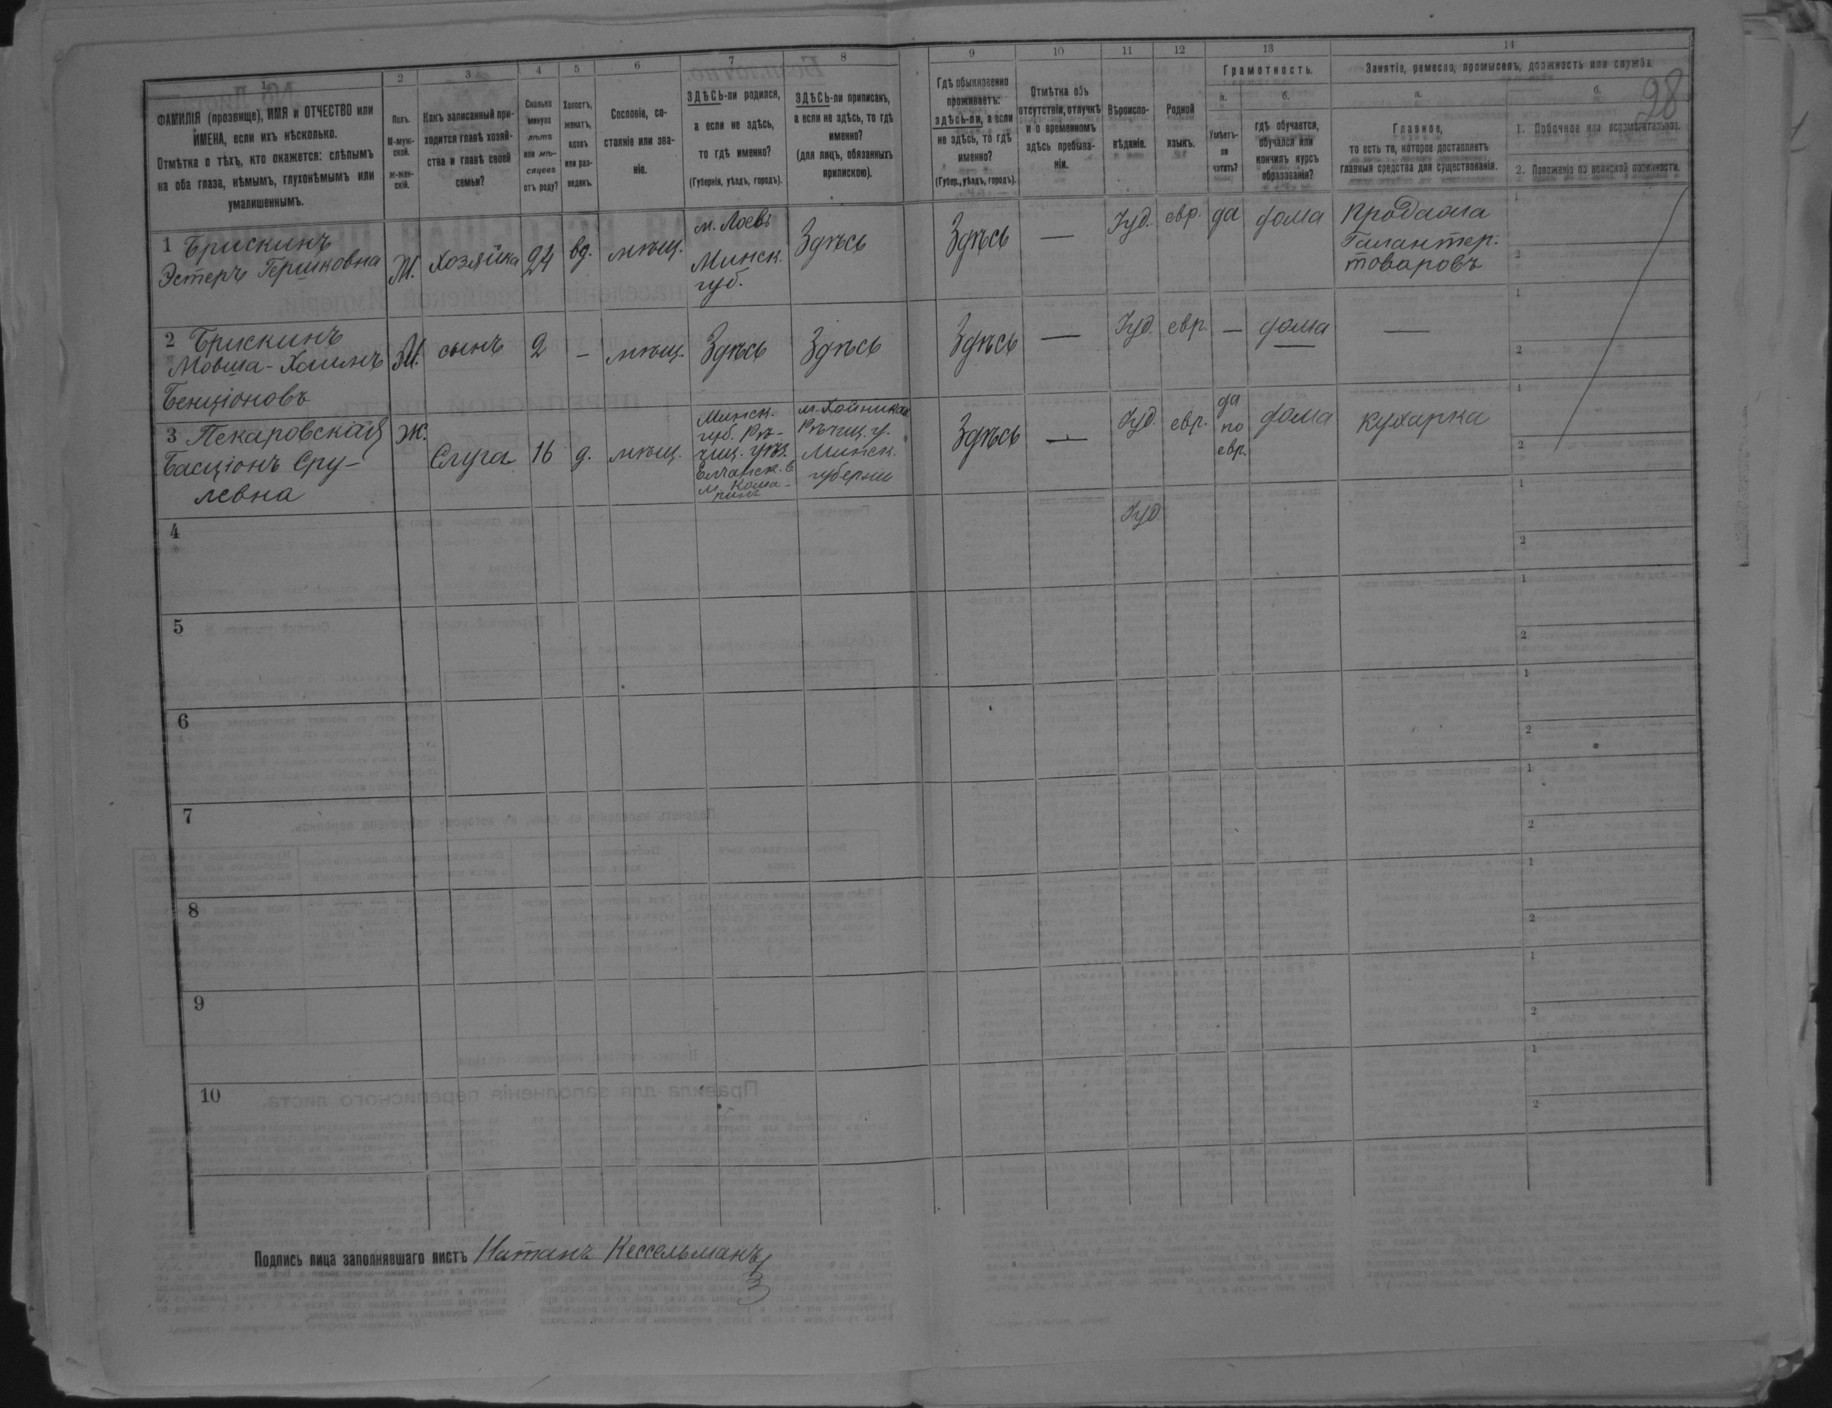 1
2
3
4
5
6
7
8
9
10
11
12
13
14
28
ФАМИЛІЯ (прозвище), ИМЯ и ОТЧЕСТВО или
ИМЕНА, если ихъ нѣсколько.
Отмѣтка о тѣхъ, кто окажется: слѣпымъ
на оба глаза, нѣмымъ, глухонѣмымъ или
умалишеннымъ.
Полъ.
М-муж-
ской.
Ж-жен-
скій.
Какъ записанный при-
ходится главѣ хозяй-
ства и главѣ своей
семьи?
Сколько
минуло
лѣтъ
или мѣ-
сяцевъ
отъ роду?
Холостъ,
женатъ,
вдовъ
или раз-
веденъ.
Сословіе, со-
стояніе или зва-
ніе.
ЗДѢСЬ-ли родился,
а если не здѣсь,
то гдѣ именно?
(Губернія, уѣздъ, городъ).
ЗДѢСЬ-ли приписанъ,
а если не здѣсь, то гдѣ
именно?
(для лицъ, обязанныхъ
припискою).
Гдѣ обыкновенно
проживаетъ:
здѣсь-ли, а если
не здѣсь, то гдѣ
именно?
(Губер., уѣздъ, городъ).
Отмѣтка объ
отсутствіи, отлучкѣ
и о временномъ
здѣсь пребыва-
ніи.
Вѣроиспо-
вѣданіе.
Родной
языкъ.
Грамотность.
а.
Умѣетъ-
ли
читать?
б.
гдѣ обучается,
обучался или
кончилъ курсъ
образованія?
Занятіе, ремесло, промыселъ, должность или служба.
а.
Главное,
то есть то, которое доставляетъ
главныя средства для существованія.
б.
1. Побочное или вспомогательное.
2. Положеніе по воинской повинности.
1 Брискинъ
Эстеръ Гершковна
Ж.
Хозяйка
24
вд.
мѣщ.
м. Лоевъ
Минск.
губ.
Здѣсь
Здѣсь
—
Іуд.
евр.
да
дома
Продажа
Галантер.
товаровъ
1
2
2 Брискинъ
Мовша-Хаимъ
Бенціоновъ
М.
сынъ
2
—
мѣщ.
Здѣсь
Здѣсь
Здѣсь
—
Іуд.
евр.
—
дома
—
1
2
3 Пекаровская
Басціонъ Сру-
левна
Ж.
Слуга
16
д.
мѣщ.
Минск.
губ. Рѣ-
чиц. уѣз.
м.
м. Хойники
Рѣчиц. у.
Минск.
губерніи
Здѣсь
—
Іуд.
евр.
да
по
евр.
дома
кухарка
1
2
4
Іуд.
1
2
5
1
2
6
1
2
7
1
2
8
1
2
9
1
2
10
1
2
Подпись лица заполнявшаго листъ Натанъ Кессельманъ
3